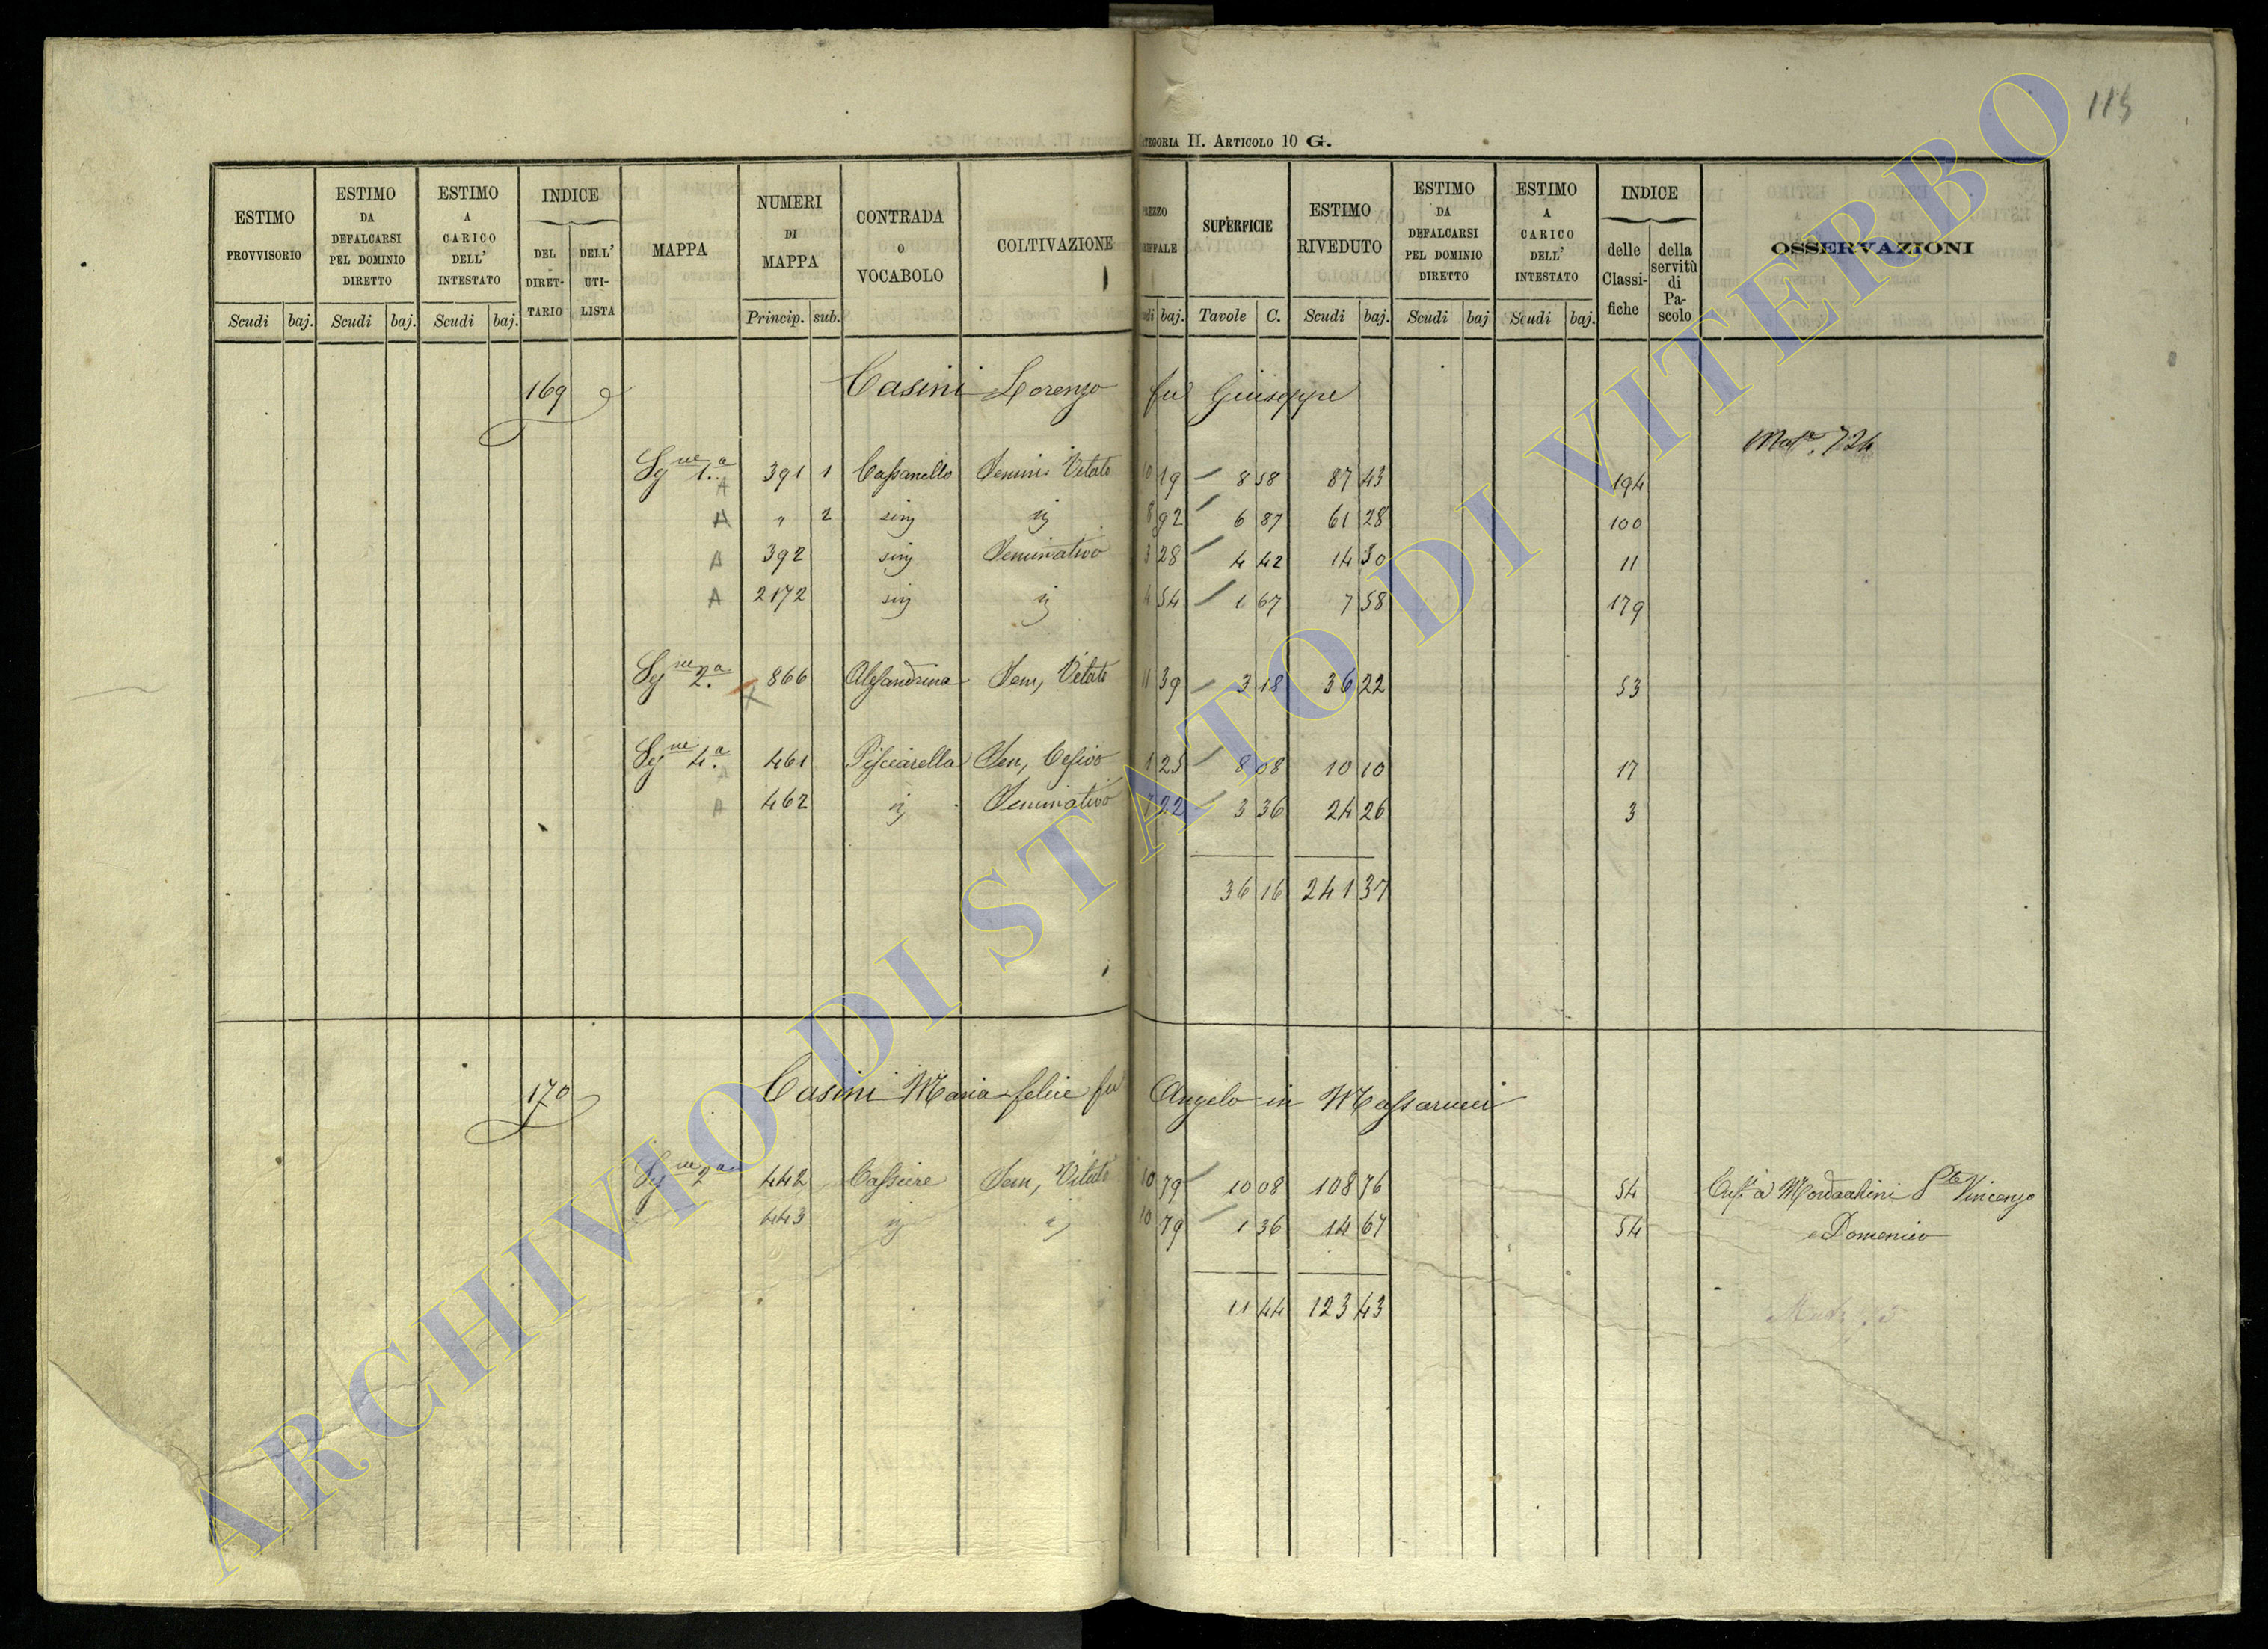 115
CATEGORIA II. ARTICOLO 10 G.
ESTIMO PROVVISORIO Scudi baj.
ESTIMO DA DEFALCARSI PEL DOMINIO DIRETTO Scudi baj.
ESTIMO A CARICO DELL' INTESTATO Scudi baj.
INDICE DEL DIRETTARIO DELL' UTILISTA
MAPPA
NUMERI DI MAPPA Princip. sub.
CONTRADA O VOCABOLO
COLTIVAZIONE
PREZZO baj.
SUPERFICIE Tavole C.
ESTIMO RIVEDUTO Scudi baj.
ESTIMO DA DEFALCARSI PEL DOMINIO DIRETTO Scudi baj
ESTIMO A CARICO DELL' INTESTATO Scudi baj.
INDICE delle Classifiche della servitù di Pascolo
OSSERVAZIONI
169 Casini Lorenzo fu Giuseppe
Mata. 724
Segne 1.a A 391 1 Semin. Vitato 10 19 8 58 87 43 194
A " 2 simj ij 8 92 6 87 61 28 100
A 392 simj Seminativo 3 28 4 42 14 30 11
A 2172 simj ij 4 54 1 67 7 58 179
Segne 2.a 866 Alessandrina Sem, Vitato 11 39 3 18 36 22 53
Segne 4.a A 461 Pisciarella Sem, Cesivo 1 25 8 08 10 10 17
A 462 ij Seminativo 7 22 3 36 24 26 3
36 16 241 37
170 Casini Maria felice fu Angelo in Massarucci
Segne 2a 442 Sem, Vitato 10 79 10 08 108 76 54 a Mordacchini Vincenzo
443 ij ij 10 79 1 36 14 67 54 e Domenico
11 44 123 43
ARCHIVIO DI STATO DI VITERBO